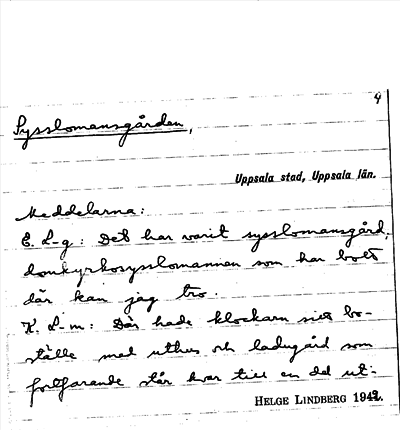 4
Sysslomansgården,
Uppsala stad, Uppsala län.
Meddelarna:
E. L-g: Det har varit sysslomansgård,
domkyrkosysslomannen som har bott
där kan jag tro.
K. L-m: Där hade klockarn sitt bo-
ställe med uthus och ladugård som
fortfarande står kvar till en del ut-
HELGE LINDBERG 1942.